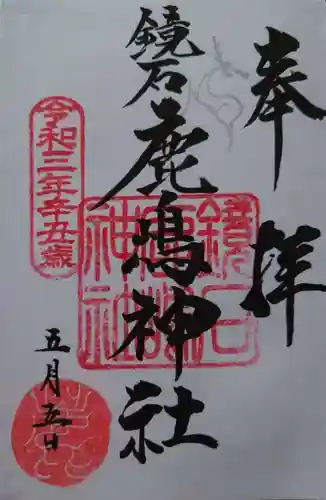 奉拝
鏡石鹿嶋神社
鏡石鹿嶋神社
令和三年辛丑歳
五月五日